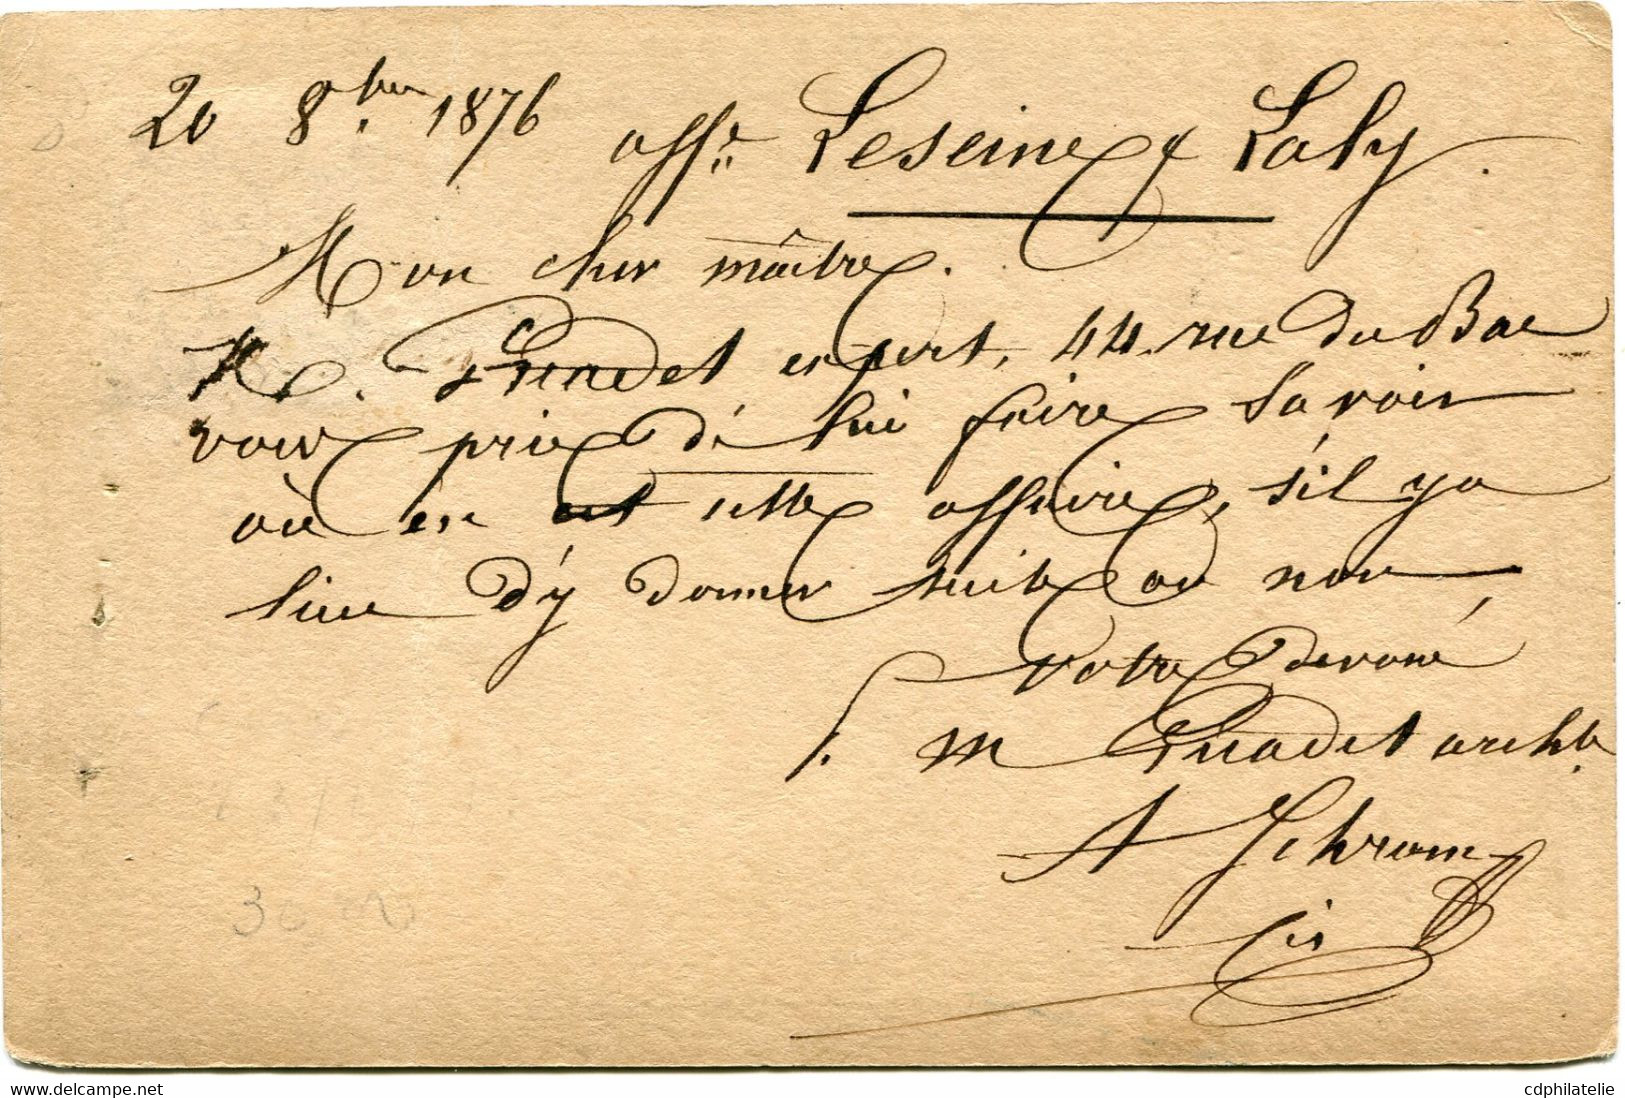 20 8bre 1876
affre Leseine & Laly.
Mon cher maître.
Mr. Guadet expert, 44 rue du Bac
vous prie de lui faire savoir
où en est cette affaire, s'il y a
lieu d'y donner suite ou non
Votre dévoué
P. m Guadet archte.
A Schrom
cis
30
delcampe.net
cdphilatelie